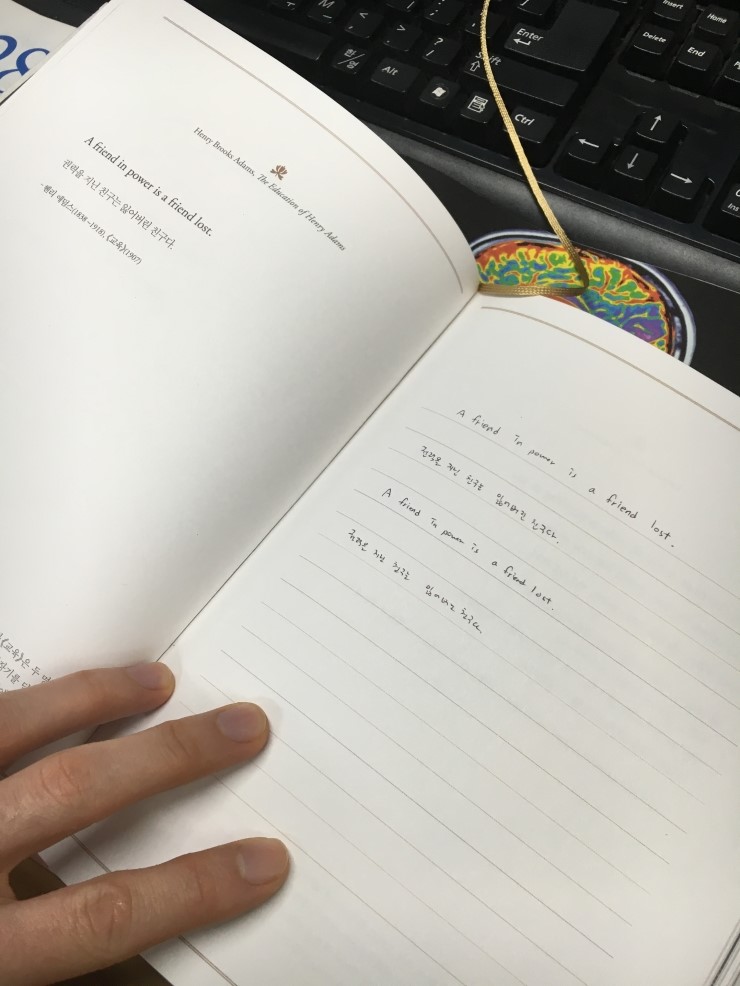 Henry Brooks Adams, The Education of Henry Adams
A friend in power is a friend lost.
권력을 지닌 친구는 잃어버린 친구다.
- 헨리 애덤스(1838~1918), 《교육》(1907)
《교육》은 두
A friend in power is a friend lost.
권력을 지닌 친구는 잃어버린 친구다.
A friend in power is a friend lost.
권력을 지닌 친구는 잃어버린 친구다.
M
<
>
?
/
한/영
Alt
Ctrl
Shift
Enter
Insert
Home
Delete
End
Ins